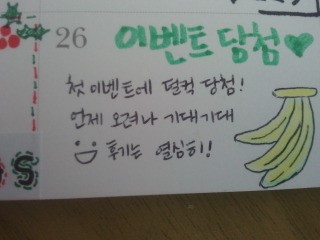 26 이벤트 당첨♥
첫 이벤트에 덜컥 당첨!
언제 오려나 기대기대
후기는 열심히!
S